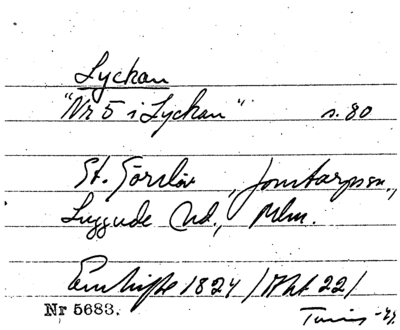 Lyckan
"Nr 5 i Lyckan" s. 80
St. Görslöv, Jonstorps sn.,
Luggude hd., Mlm.
Enskifte 1824 /Akt 22/
Nr 5683.